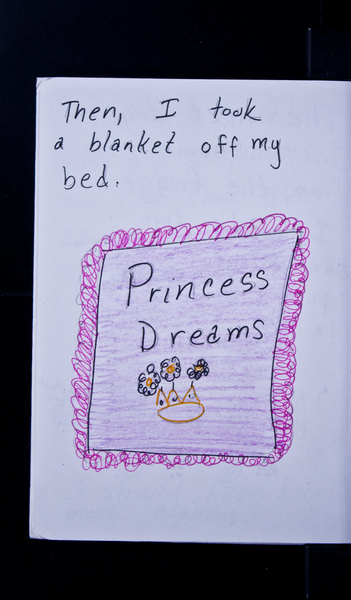 Then, I took
a blanket off my
bed.
Princess
Dreams